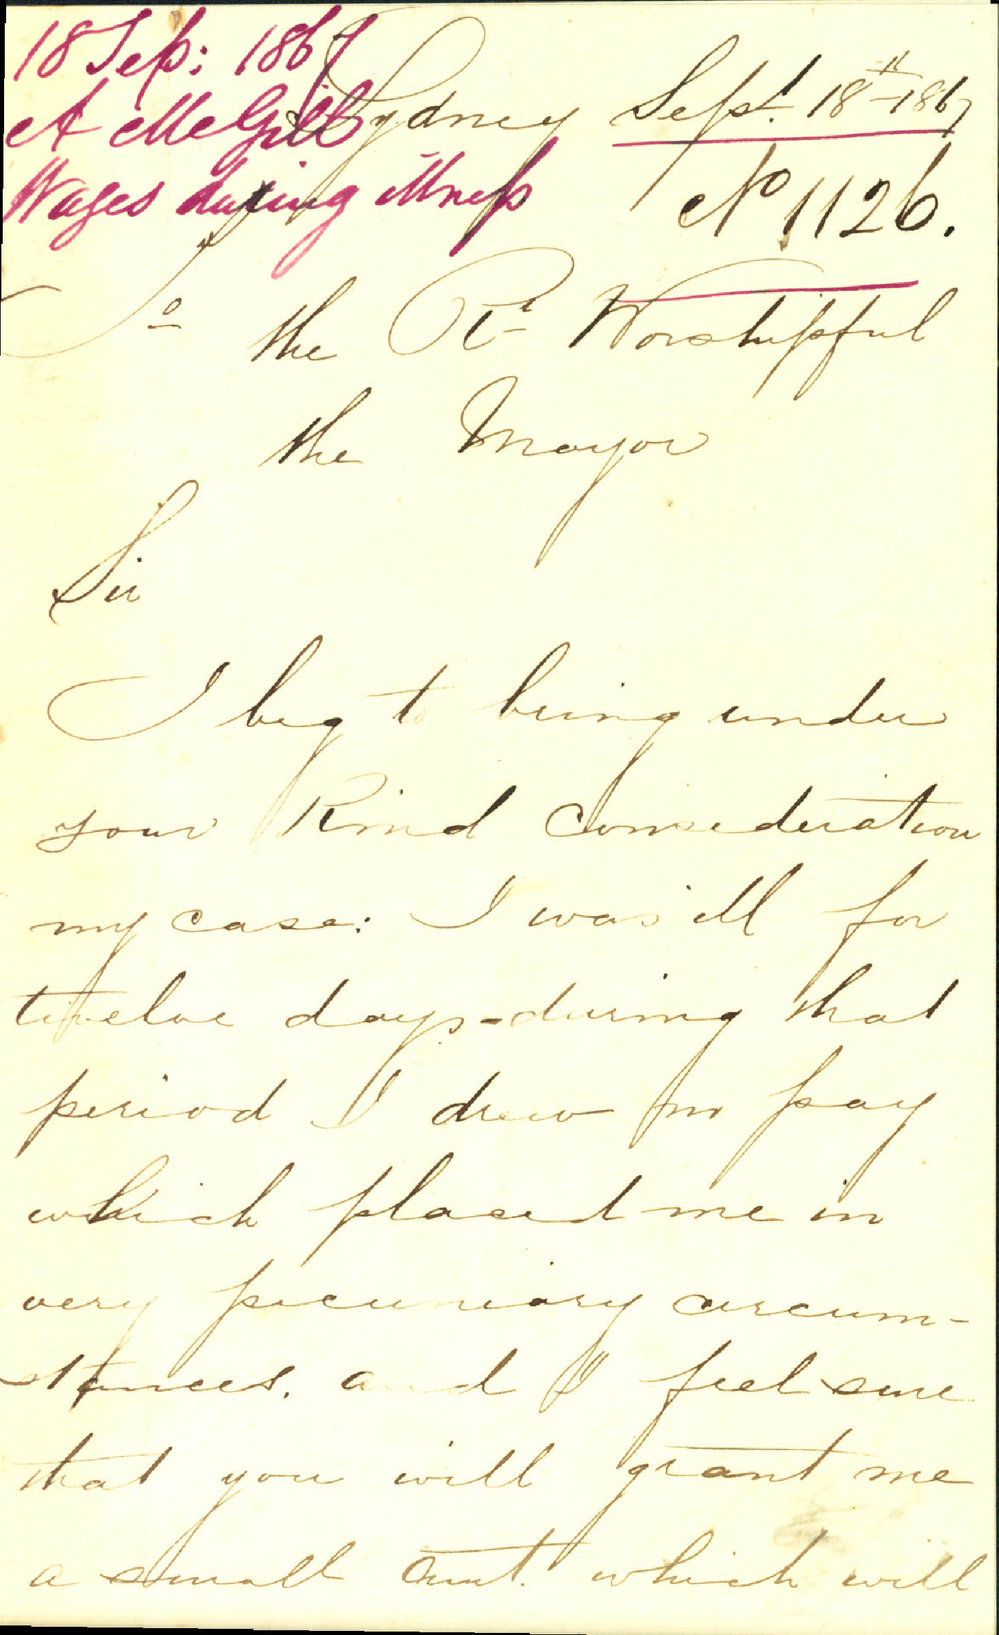 18 Sep: 1867
A McGill
Wages during illness
Sydney Sept. 18th 1867
No 1126.
To the Rt Worshipful
the Mayor
Sir
I beg to bring under
your Kind Consideration
my case: I was ill for
twelve days - during that
period I drew no pay
which placed me in
very pecuniary circum-
stances. and I feel sure
that you will grant me
a small Amt. which will